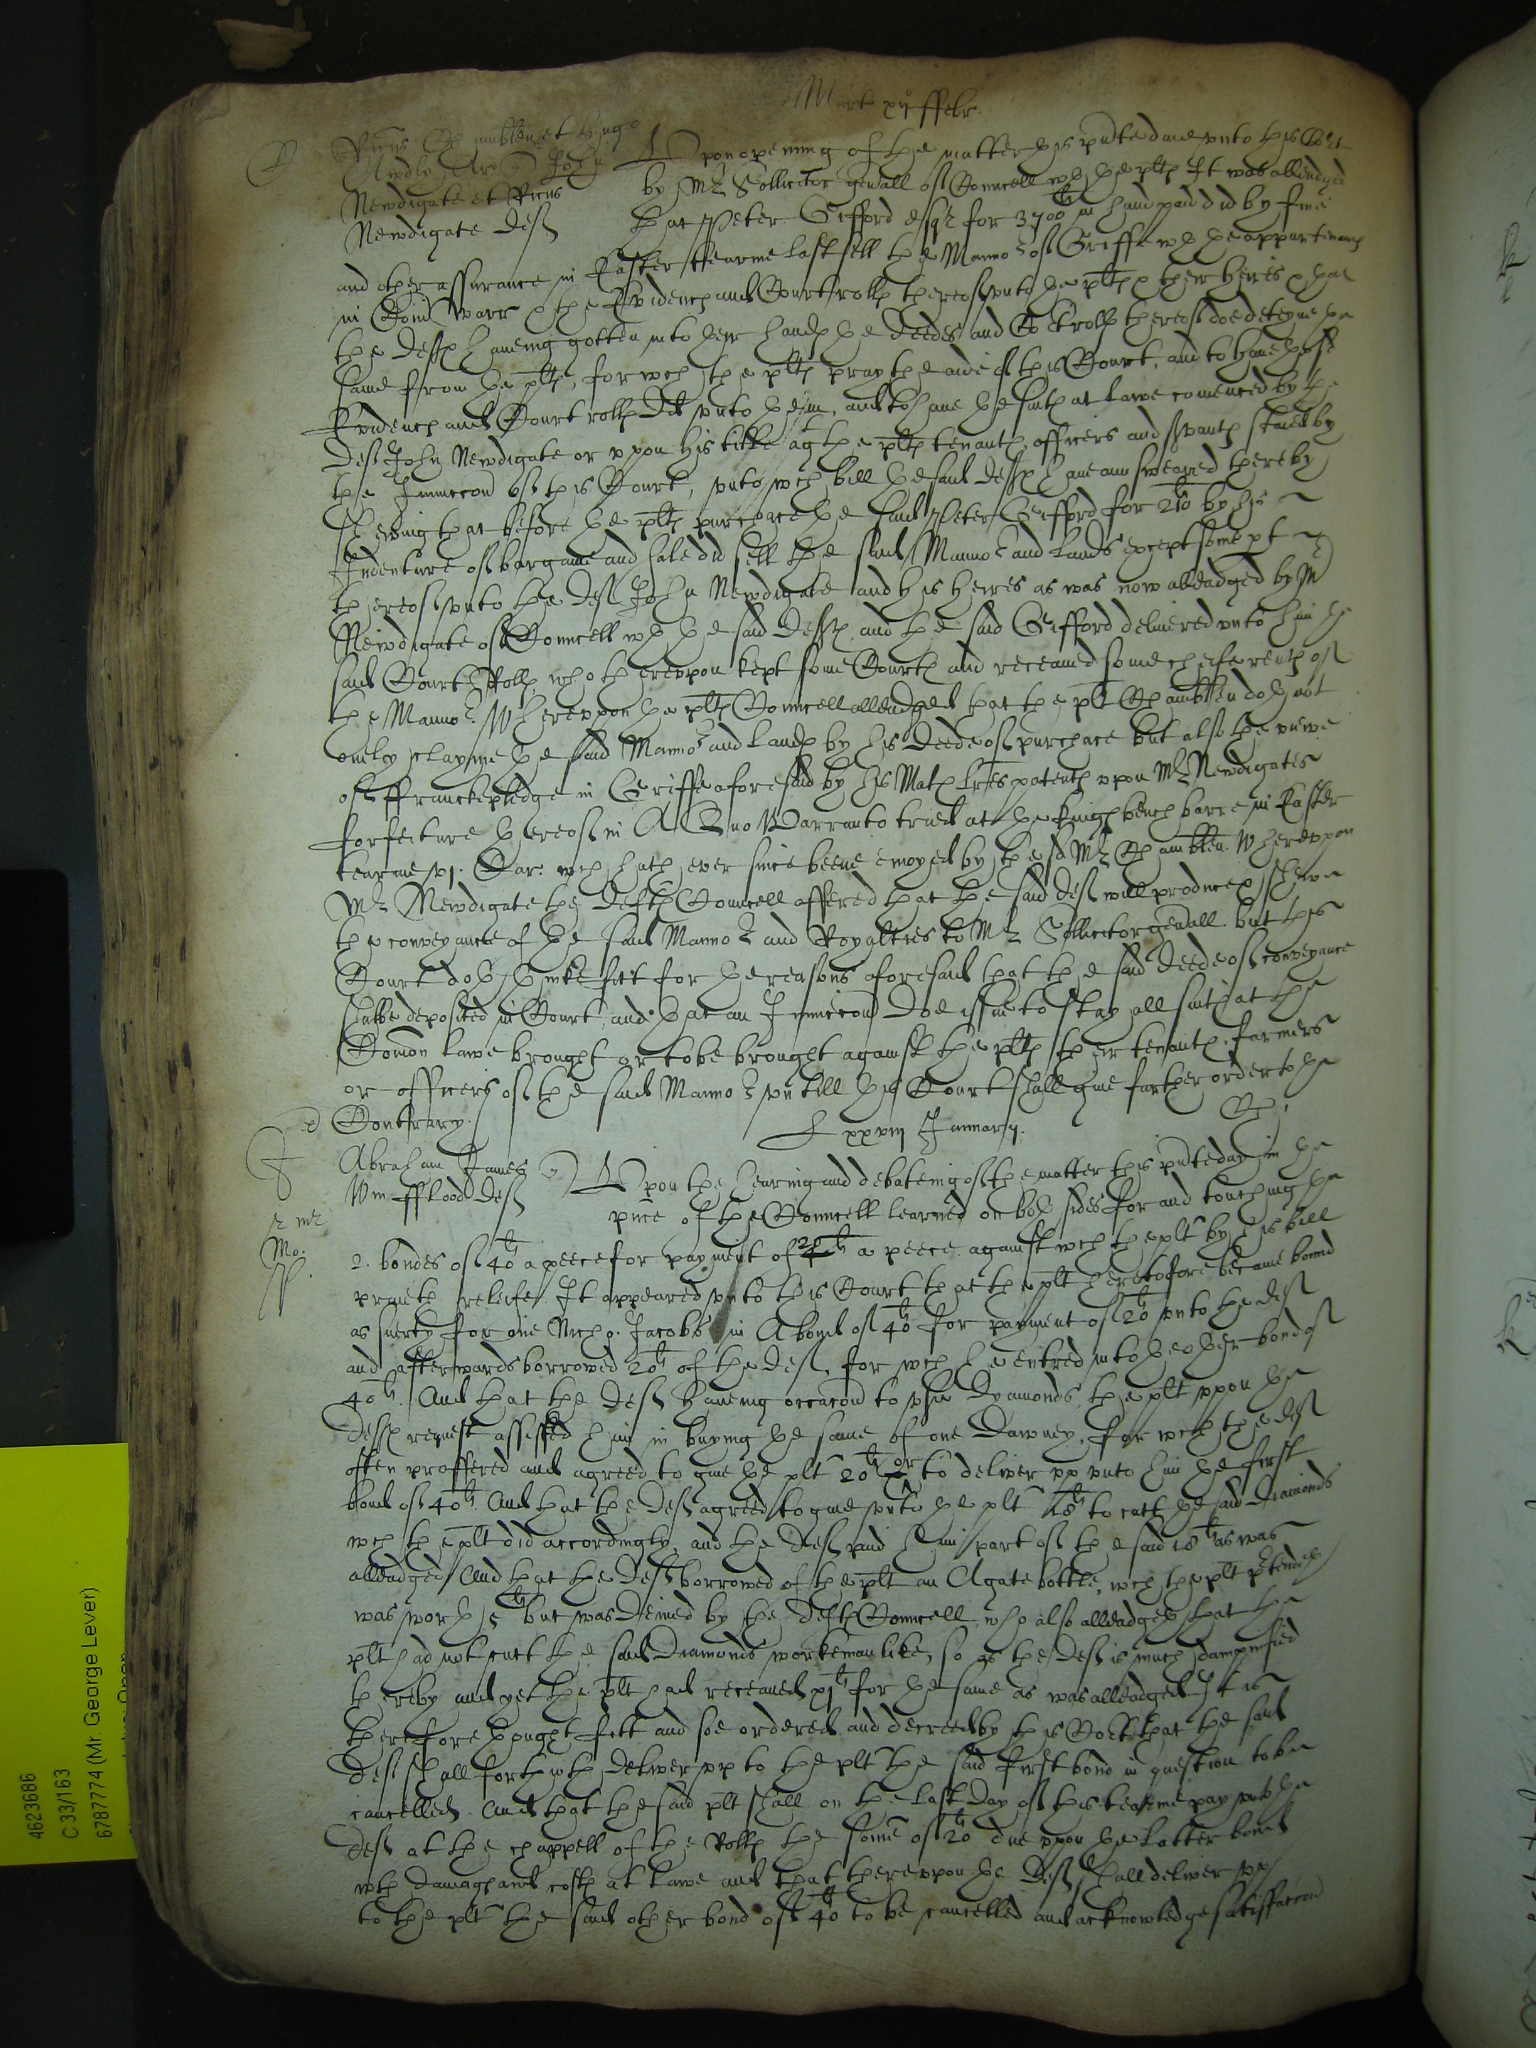 Mart xij ffebr.
Ricus Chamblen et Hugo
Awdley Ar qr John
Newdigate et Ricus
Newdigate defs
Upon opening of the matter this pnte daie vnto this Cort
by Mr Sollicitor gen̄all of Councell wth the pltes It was alleadged
that Peter Gifford esqr for 3700li in hand paid did by fine
and other assurance in Easter tearme last sell the Mannor of Griffe wth the appurtennces
in Com̄ Warr & the Evidences and Court rolls thereof vnto the pltes & their heires & that
the defts haueing gotten into their hands the deedes and Cort rolls thereof doe deteyne the
same from the pltes, for wch the pltes pray the aide of this Court, and to haue these
Evidences and Court rolls dd vnto them, and to haue the suites at lawe comenced by the
def John Newdigate or vpon his title agt the pltes tenants officers and srvants staied by
the Iniuncc̄on of this Court, vnto wch bill the said defts haue aunsweared thereby
shewing that before the pltes purchace the said Peter Gifford for 210li by his
Indenture of bargaine and sale did sell the said Mannor and lands except some pt
thereof vnto the def John Newdigate and his heires as was now alleadged by Mr
Newdigate of Councell wth the said defts, and the said Gifford deliuered vnto him the
said Court Rolls who therevpon kept some Courts and receaued some cheife rents of
the Mannor. Wherevpon the pltes Councell alleadged that the plt Chamblen doth not
onely clayme the said Mannor and lands by his deede of purchace but also the viewe
of ffranckepledge in Griffe aforesaid by his Mats lres patents vpon Mr Newdigates
forfeiture thereof in A Quo Warranto tried at the kings bench barre in Easter
tearme vj. Car. wch hath ever since beene enioyed by the sd Mr Chamblen. Wherevpon
Mr Newdigate the defts Councell offered that the said def will produce & shewe
the conveyance of the said Mannor and Royalties to Mr Sollicitor gen̄all but this
Court doth thinke fitt for the reasons aforesaid that the said deede of conveyance
shalbe deposited in Court, and that an Iniuncc̄on doe issue to stay all suites at the
Com̄on lawe brought or to be brought against the pltes their tenants, farmers
or officers of the said Mannor vntill this Court shall giue further order to the
Contrary.
xxviij Januarij.
Abraham James qr
Wm fflood def
Upon the hearing and debateing of the matter this pnte day in the
pnce of the Councell learned on both sides for and touching the
2. bondes of 40li a peece for payment of 20li a peece against wch the plt by his bill
prayeth releife. It appeared vnto this Court that the plt heretofore became bound
as suerty for one Nicho. Jacobs in A bond of 40li for payment of 20li vnto the def
and afterwards borrowed 20li of the def, for wch he entred into the other bond of
40li. And that the def haueing occac̄on to vse Dyamonds, the plt vpon the
defts request assisted him in buying the same of one Dawney, for wch the def
often proffered and agreed to giue the plt 20li or to deliver vp vnto him the first
bond of 40li. And that the def agreed to giue vnto the plt 18li to cutt the said Diamonds
wch the plt did accordingly, and the def paid him part of the said 18li as was
alleadged. And that the def borrowed of the plt an Agate bottle, wch the plt p̄tendeth
was worth 5li but was denied by the defts Councell, who also alleadgeth that the
plt had not cutt the said Diamonds workemanlike, so as the def is much dampnified
thereby and yet the plt had receaued xjli for the same as was alleadged. It is
therefore thought fitt and soe ordered and decreed by this Cort that the said
def shall forthwth deliver vp to the plt the said first bond in question to be
cancelled. And that the said plt shall on the last day of this tearme pay vnto the
def at the chappell of the Rolls the some of 20li due vpon the latter bond
wth damages and costs at lawe and that therevpon the def shall deliver vp
to the plt the said other bond of 40li to be cancelled and acknowledge satisfacc̄on
4623686
C 33/163
6787774 (Mr. George Lever)